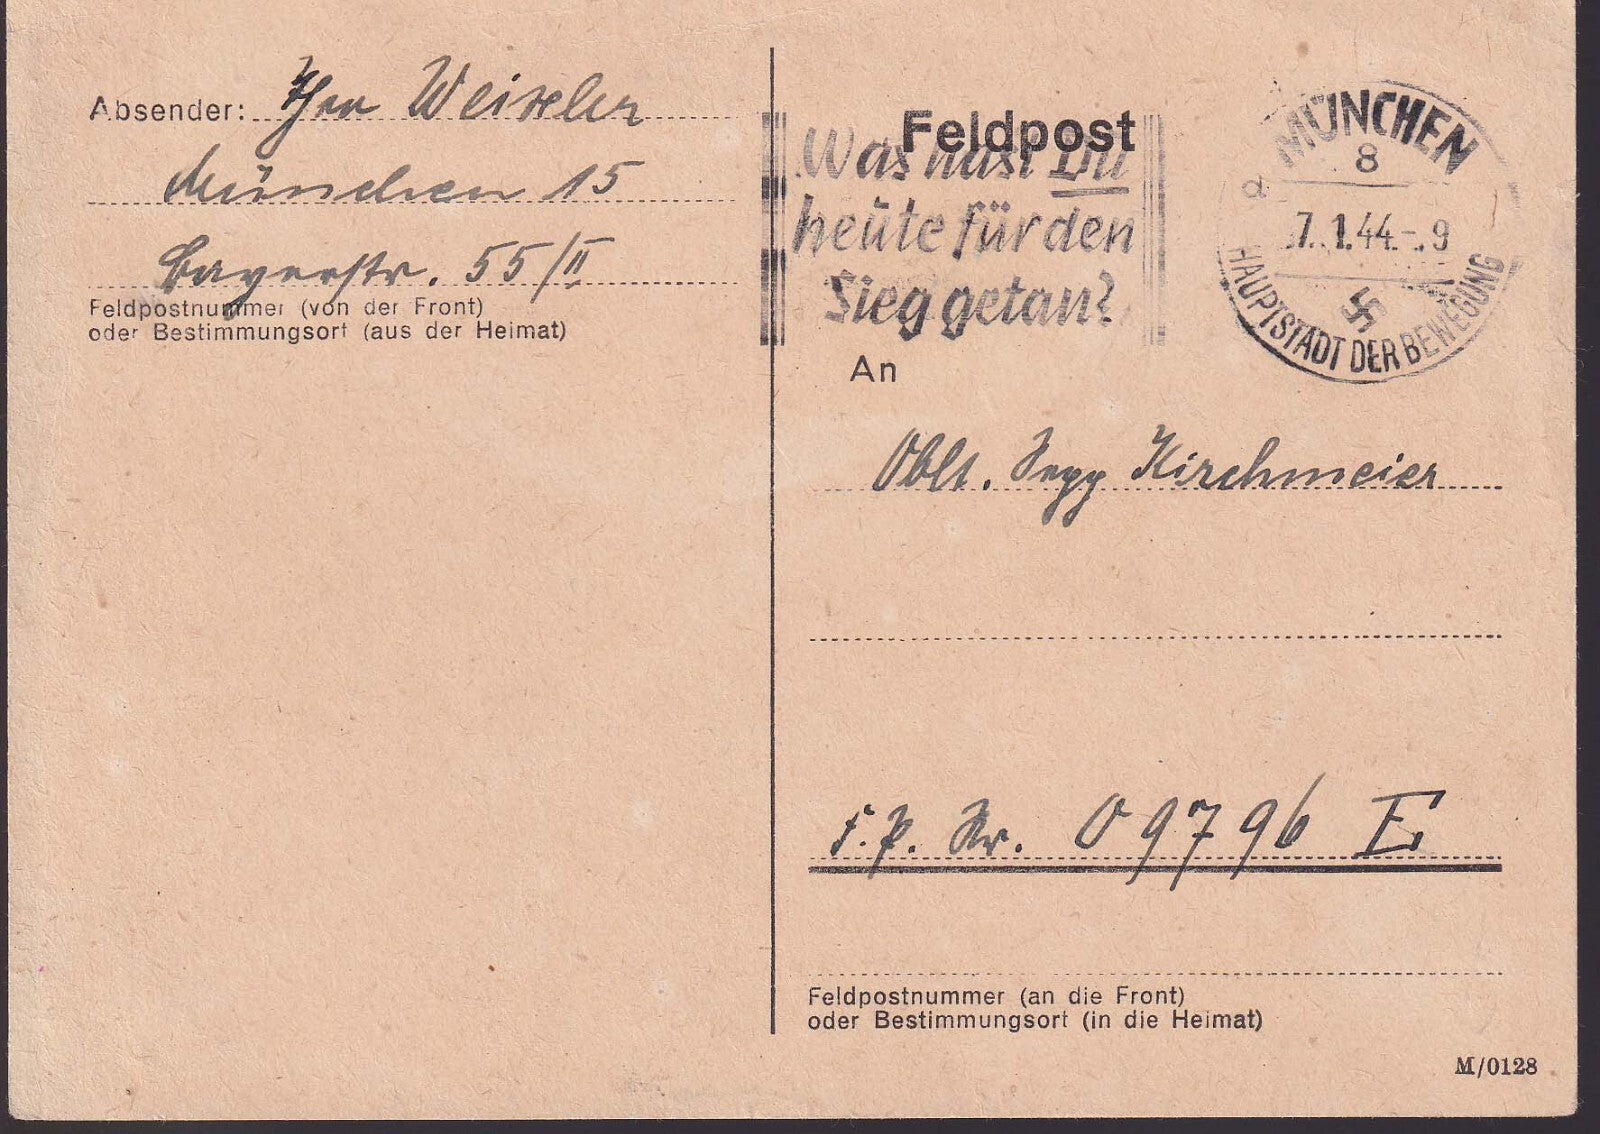 Absender: Weixler
München 15
Bayerstr. 55/II
Feldpostnummer (von der Front)
oder Bestimmungsort (aus der Heimat)
Feldpost
Was hast Du
heute für den
Sieg getan?
MÜNCHEN
8
d
7.1.44.-9
HAUPTSTADT DER BEWEGUNG
An
Oblt. Sepp Kirchmeier
F.P. Nr. 09796 E
Feldpostnummer (an die Front)
oder Bestimmungsort (in die Heimat)
M/0128